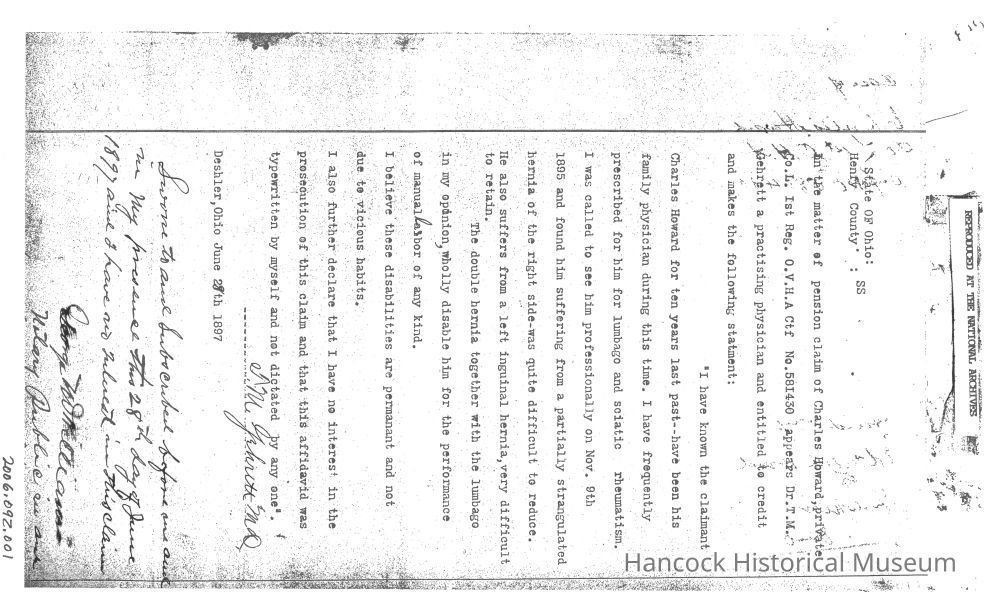 REPRODUCED AT THE NATIONAL ARCHIVES
State OF Ohio:
Henry County : SS
In the matter of pension claim of Charles Howard,private
Co.L. Ist Reg. O.V.H.A Ctf No.581430 appears Dr.T.M.
Gehrett a practising physician and entitled to credit
and makes the following statment:
"I have known the claimant
Charles Howard for ten years last past--have been his
family physician during this time. I have frequently
prescribed for him for lumbago and sciatic rheumatism.
I was called to see him professionally on Nov. 9th
1895 and found him suffering from a partially strangulated
hernia of the right side-was quite difficult to reduce.
He also suffers from a left inguinal hernia,very difficult
to retain.
The double hernia together with the lumbago
in my opinion,wholly disable him for the performance
of manual labor of any kind.
I believe these disabilities are permanant and not
due to vicious habits.
I also further declare that I have no interest in the
prosecution of this claim and that this affidavid was
typewritten by myself and not dictated by any one".
T.M. Gehrett M.D.
Deshler,Ohio June 28th 1897
Sworn to and Subscribed before me and
in my presence this 28th day of June
1897 and I have no interest in this claim
George
Notary Public in and
2006.092.001
Hancock Historical Museum